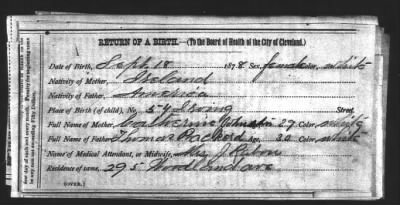 RETURN OF A BIRTH.—(To the Board of Health of the City of Cleveland.)
Date of Birth, Sept 18 1878 Sex, female Color, white
Nativity of Mother, Ireland
Nativity of Father, America
Place of Birth (of child), No. 54 Irving Street,
Full Name of Mother, Catherine Age, 27 Color white
Full Name of Father, Thomas Packard Age, 30 Color white
Name of Medical Attendant, or Midwife, Mrs J
Residence of same, 295 Woodland ave
(OVER.)